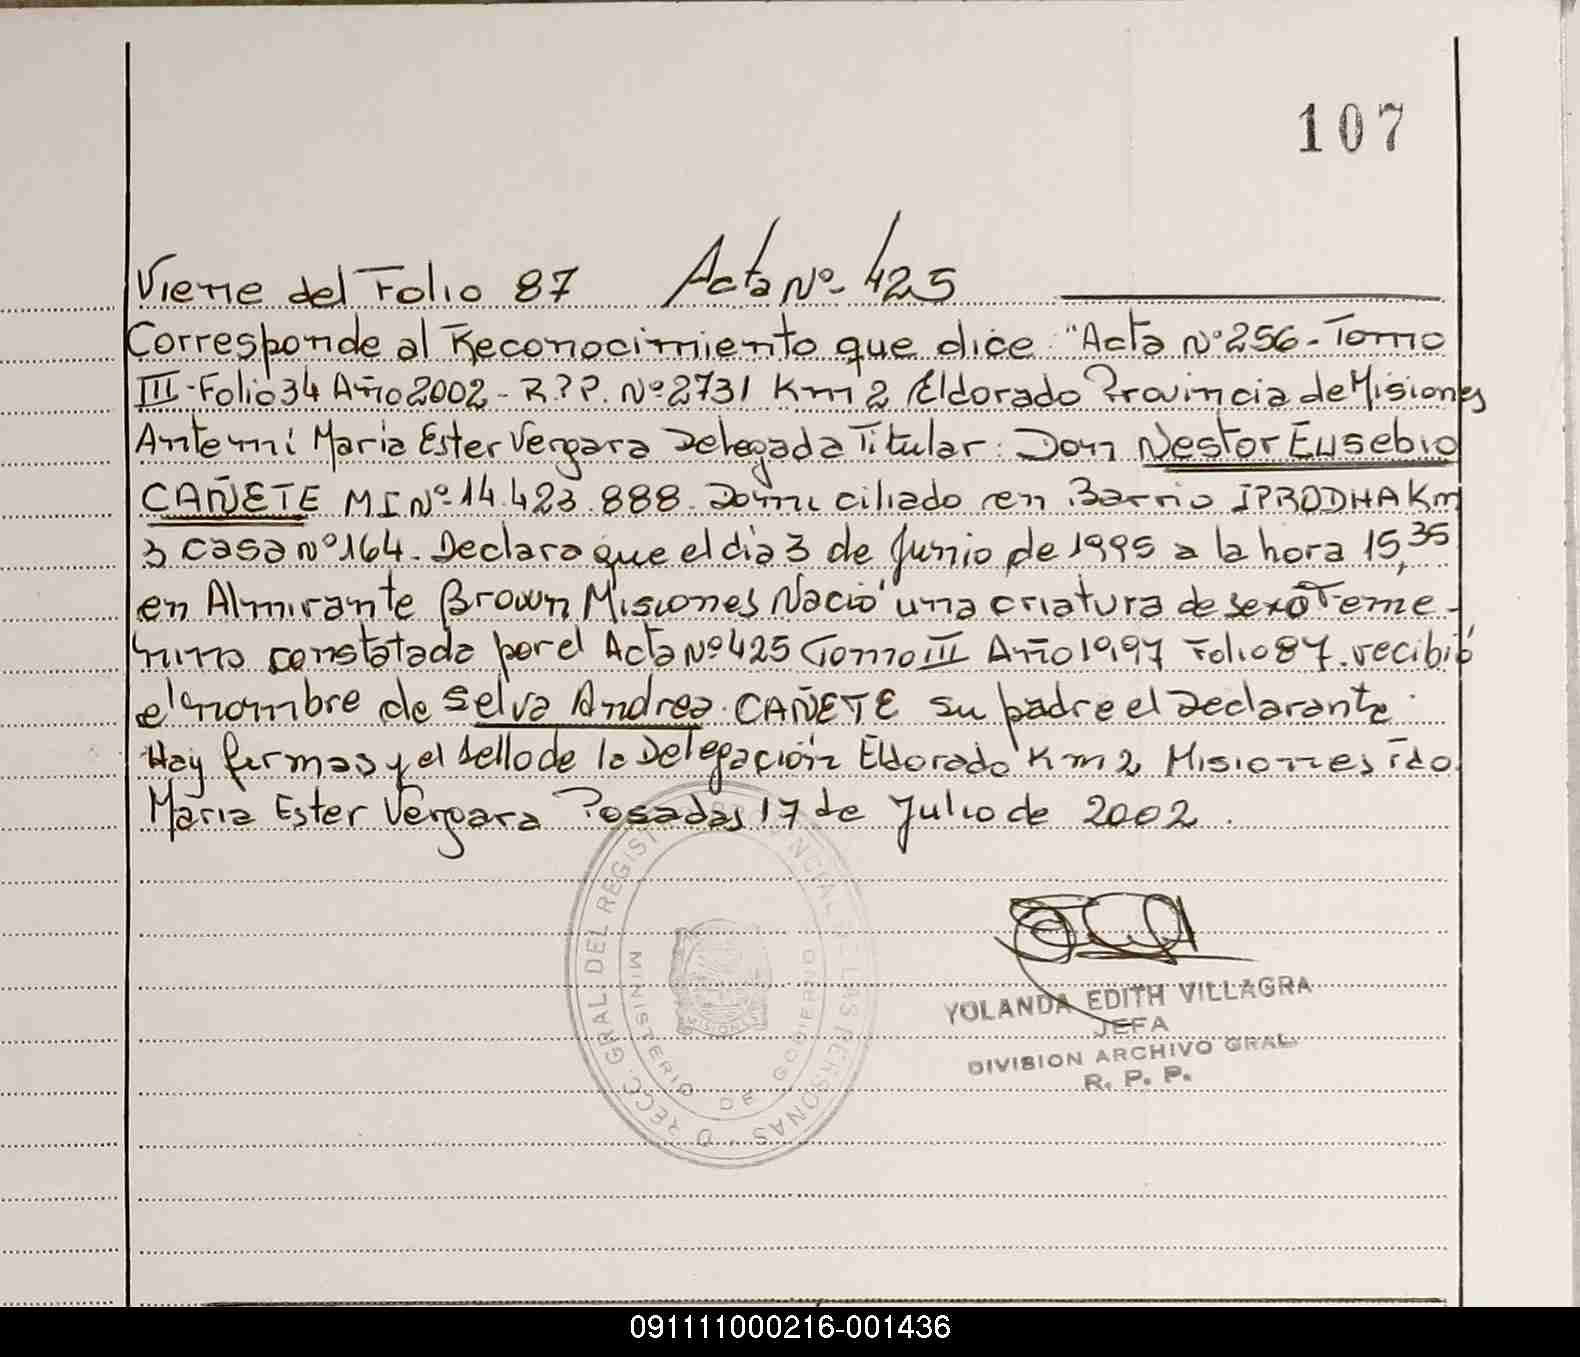 107
Viene del Folio 87 Acta Nº 425
Corresponde al Reconocimiento que dice "Acta Nº 256 - Tomo
III - Folio 34 Año 2002 - R.P.P. Nº 2731 Km 2 Eldorado Provincia de Misiones
Ante mí Maria Ester Vergara Delegada Titular: Don Nestor Eusebio
CAÑETE MI Nº 14.423.888. Domiciliado en Barrio IPRODHA Km
3 casa Nº 164. Declara que el dia 3 de Junio de 1995 a la hora 15,35
en Almirante Brown Misiones Nació una criatura de sexo Feme-
nino constatada por el Acta Nº 425 Tomo III Año 1997 Folio 87. recibió
el nombre de Selva Andrea CAÑETE su padre el Declarante.
Hay firmas y el sello de la Delegación Eldorado Km 2 Misiones Fdo
Maria Ester Vergara Posadas 17 de Julio de 2002.
YOLANDA EDITH VILLAGRA
JEFA
DIVISION ARCHIVO GRAL.
R. P. P.
DIRECC. GRAL. DEL REGISTRO PROVINCIAL DE LAS PERSONAS
MINISTERIO DE GOBIERNO
MISIONES
091111000216-001436